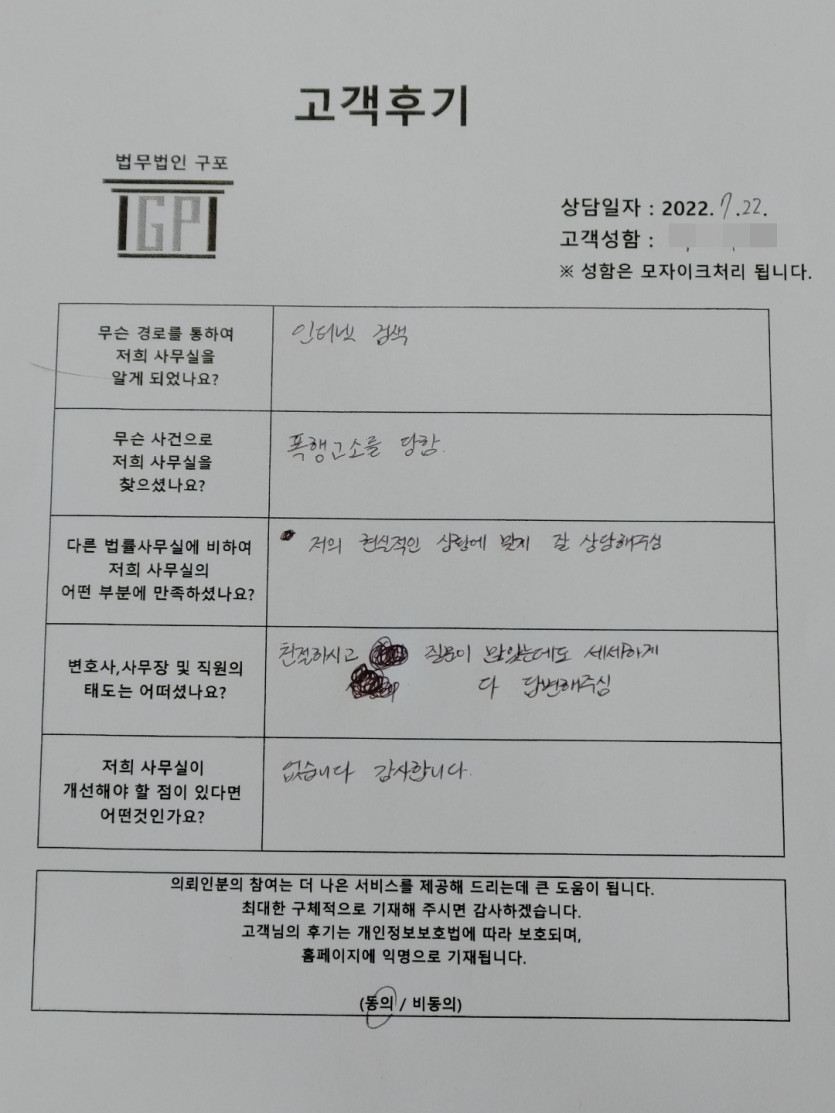 고객후기
법무법인 구포
GP
상담일자 : 2022. 7. 22.
고객성함 :
※ 성함은 모자이크처리 됩니다.
무슨 경로를 통하여
저희 사무실을
알게 되었나요?
인터넷 검색
무슨 사건으로
저희 사무실을
찾으셨나요?
폭행고소를 당함.
다른 법률사무실에 비하여
저희 사무실의
어떤 부분에 만족하셨나요?
저의 현실적인 상황에 맞게 잘 상담해주심
변호사,사무장 및 직원의
태도는 어떠셨나요?
친절하시고 질문이 많았는데도 세세하게
다 답변해주심
저희 사무실이
개선해야 할 점이 있다면
어떤것인가요?
없습니다 감사합니다.
의뢰인분의 참여는 더 나은 서비스를 제공해 드리는데 큰 도움이 됩니다.
최대한 구체적으로 기재해 주시면 감사하겠습니다.
고객님의 후기는 개인정보보호법에 따라 보호되며,
홈페이지에 익명으로 기재됩니다.
(동의 / 비동의)